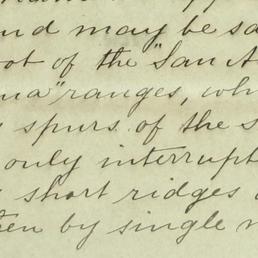 and may be sa
oot of the "San A
ma" ranges, wh
spurs of the s
only interrupt
short ridges
ten by single